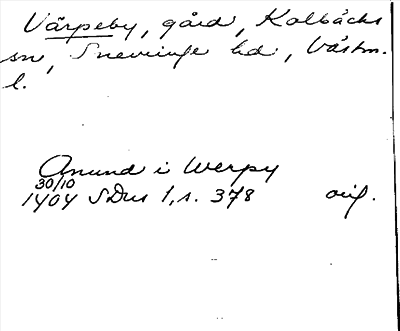 Värpeby, gård, Kolbäcks
sn, Snevringe hd, Västm.
l.
Anund i Werpy
30/10
1404 SDns 1, s. 378 orig.